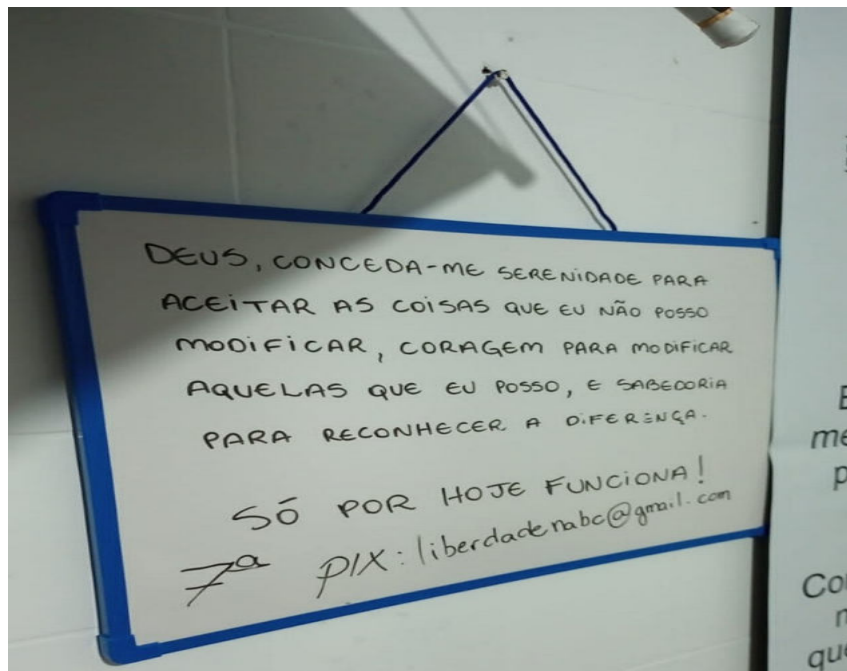 DEUS, CONCEDA-ME SERENIDADE PARA
ACEITAR AS COISAS QUE EU NÃO POSSO
MODIFICAR, CORAGEM PARA MODIFICAR
AQUELAS QUE EU POSSO, E SABEDORIA
PARA RECONHECER A DIFERENÇA.
SÓ POR HOJE FUNCIONA!
7ª PIX: liberdadenabc@gmail.com